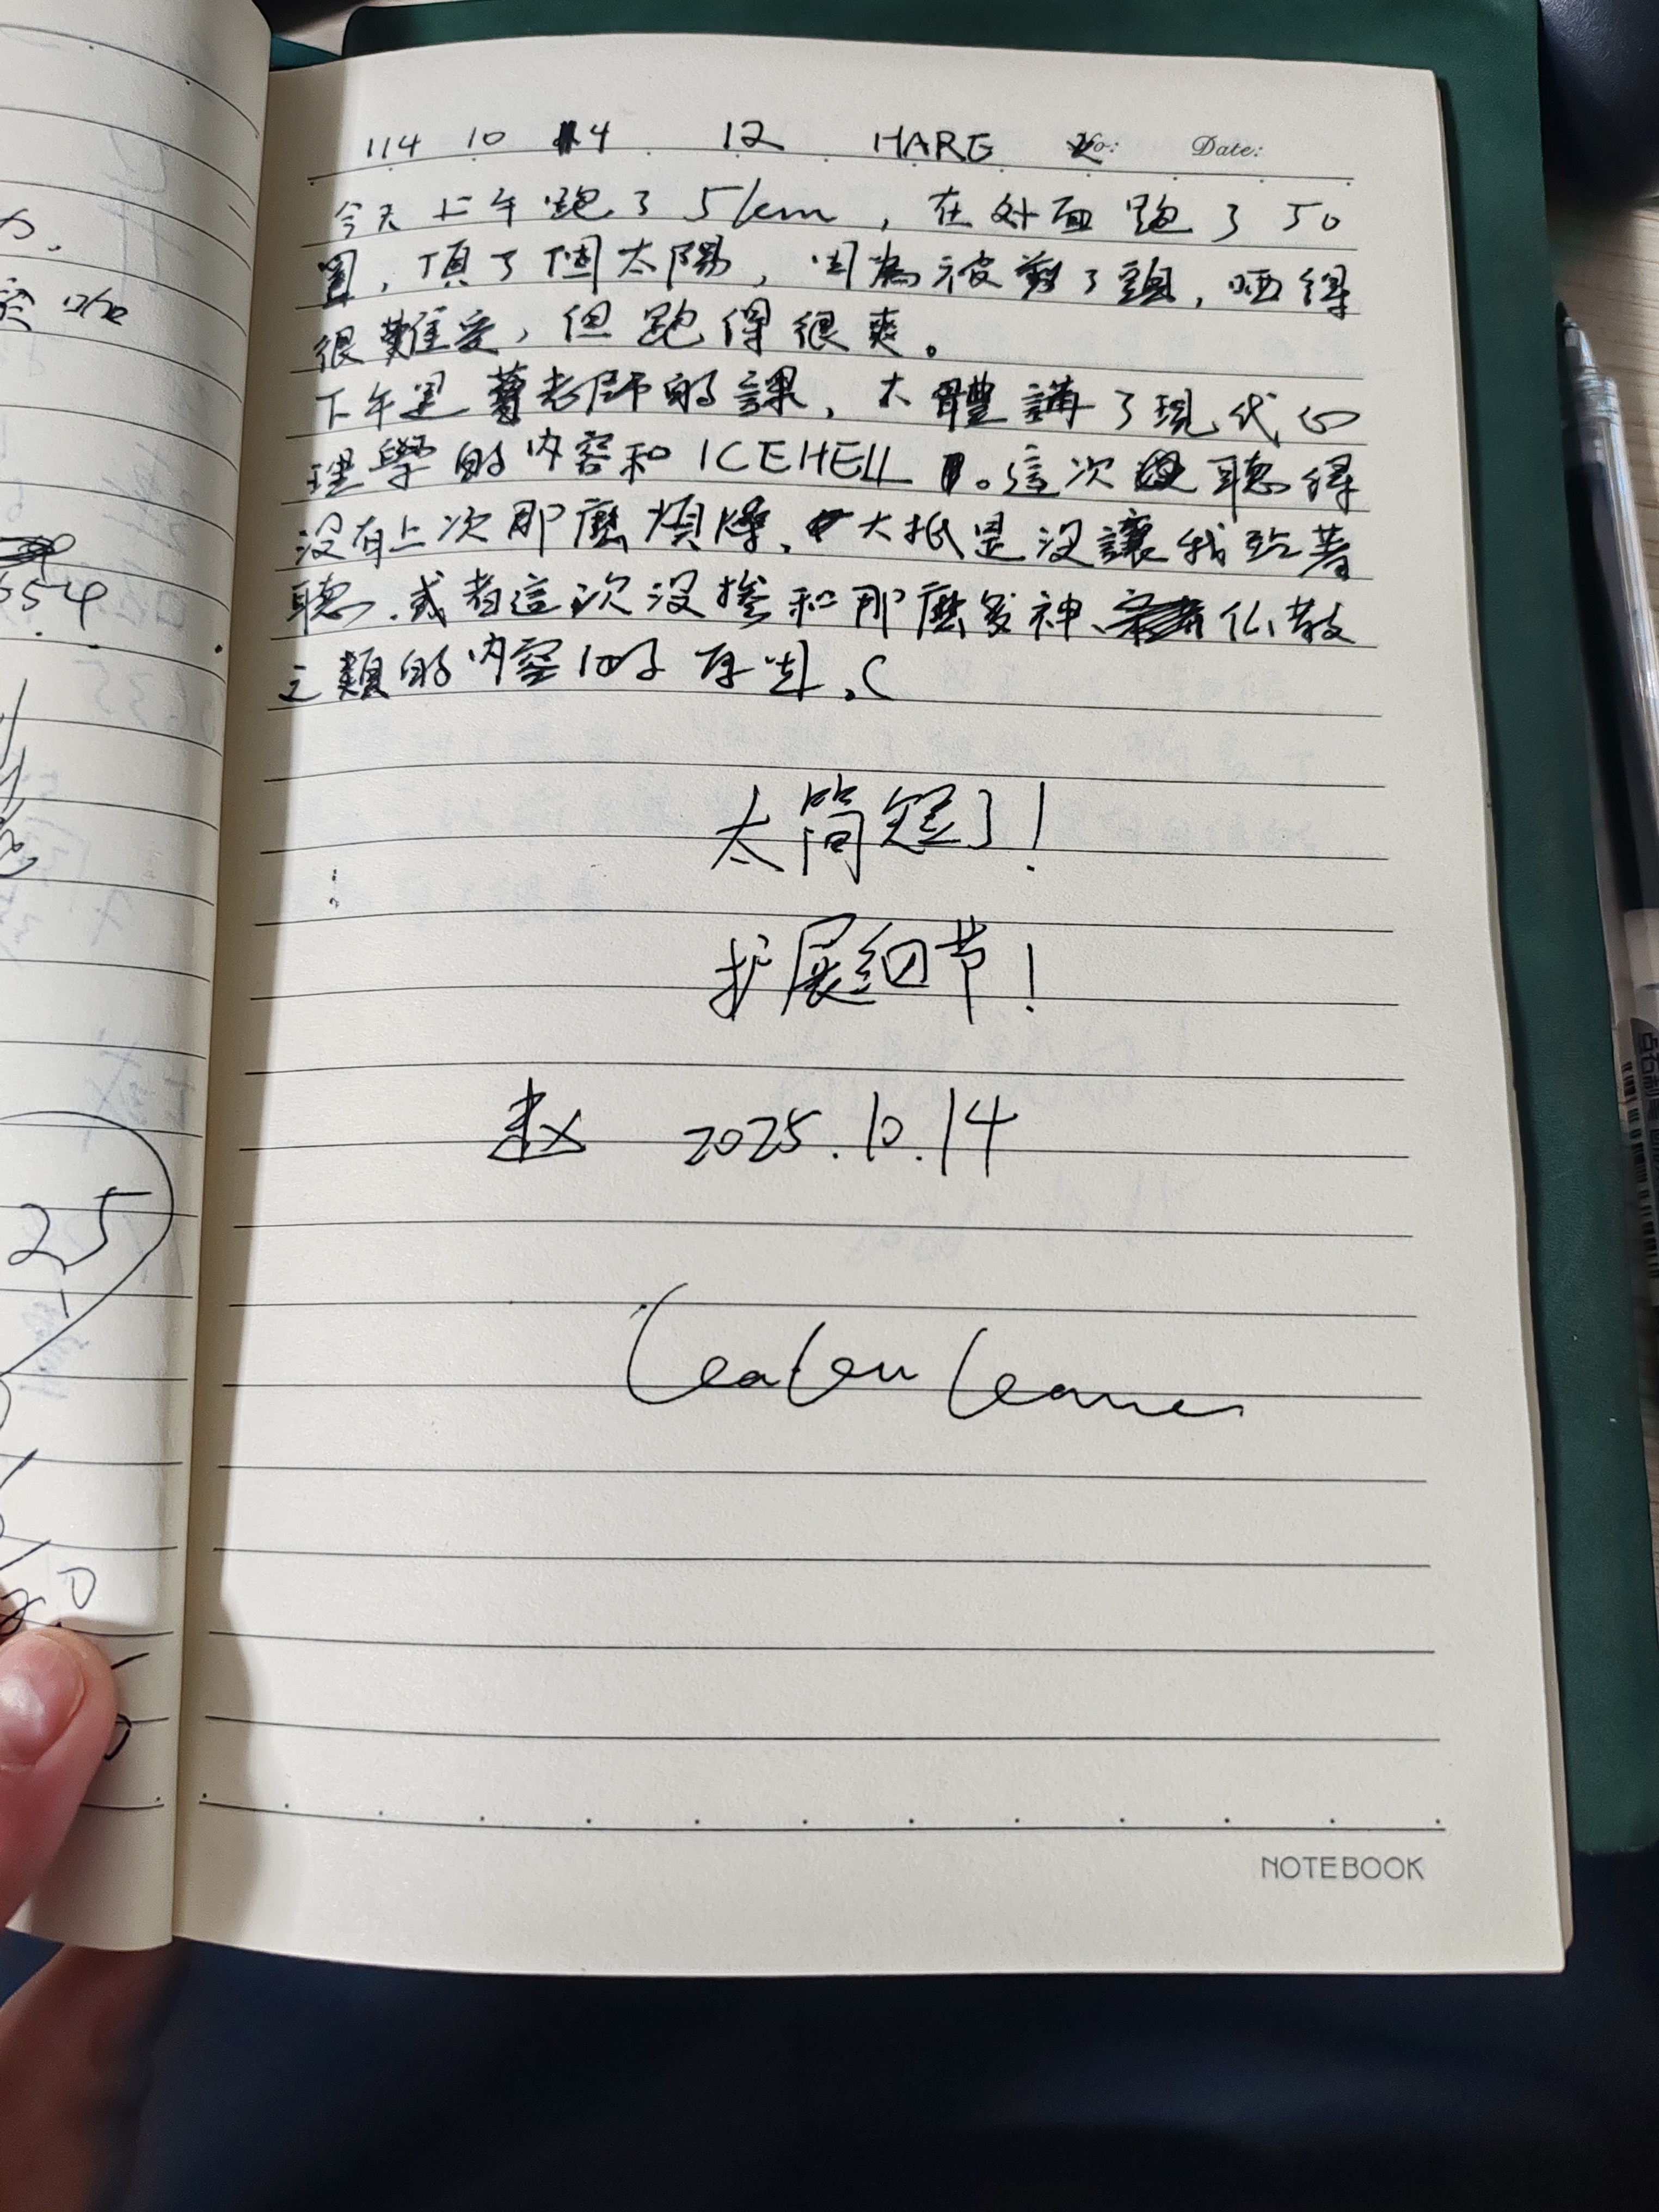 114 10 14 12 HARE No: Date:
今天上午跑了5km，在外面跑了50
圈，頂了個太陽，因為被剪了頭，晒得
很難受，但跑得很爽。
下午是曹老師的課，大體講了現代心
理學的内容和ICEHELL。這次聽得
没有上次那麼煩燥、大抵是没讓我站著
聽，或者這次没摻和那麼多神、仏教
之類的内容的原因。
太简短了！
扩展细节！
赵 2025.10.14
654
25
NOTEBOOK